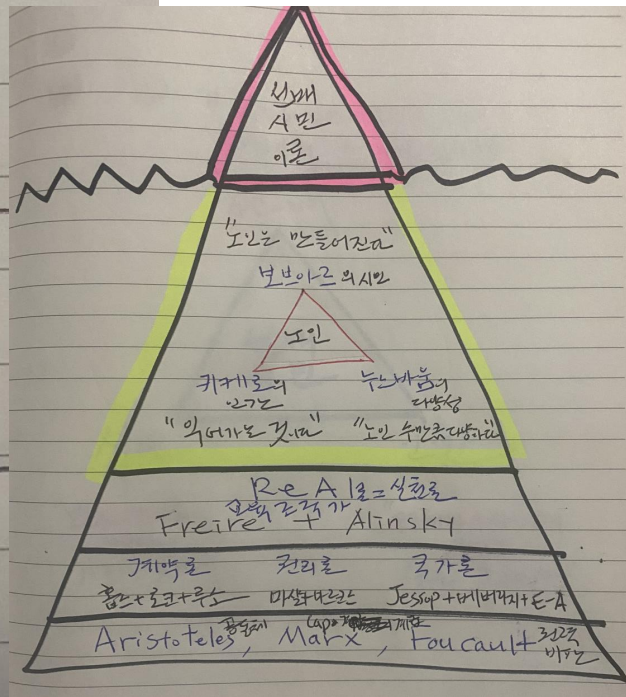 선배
시민
이론
"노인은 만들어진다"
보브아르의 시민
노인
키케로의 인간 누스바움의 다양성
"익어가는 것이다" "노인 수만큼 다양하다"
ReAl론=실천론
교육 조직가
Freire + Alinsky
계약론 권리론 국가론
홉스+로크+루소 마샬+마르크스 Jessop+베버리지+E-A
Aristoteles 공동체, Marx, Foucault 권력 비판